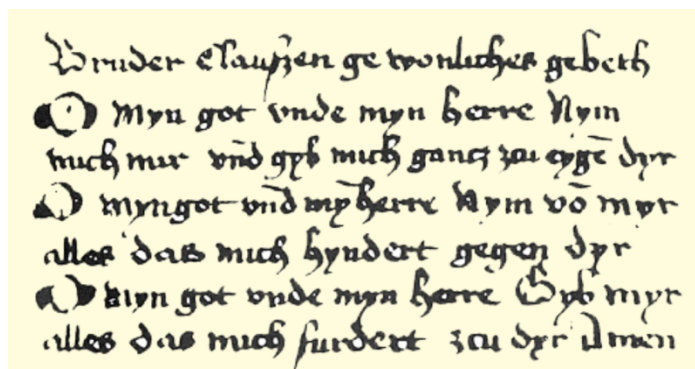 Bruder Claußen gewonliches gebeth
O Myn got vnde myn herre Nym
mich mir vnd gyb mich gantz zcu eygē dyr
O myn got vnd mȳ herre Nym vō myr
alles das mich hyndert gegen dyr
O myn got vnde myn herre Gyb myr
alles das mich furdert zcu dyr Amen